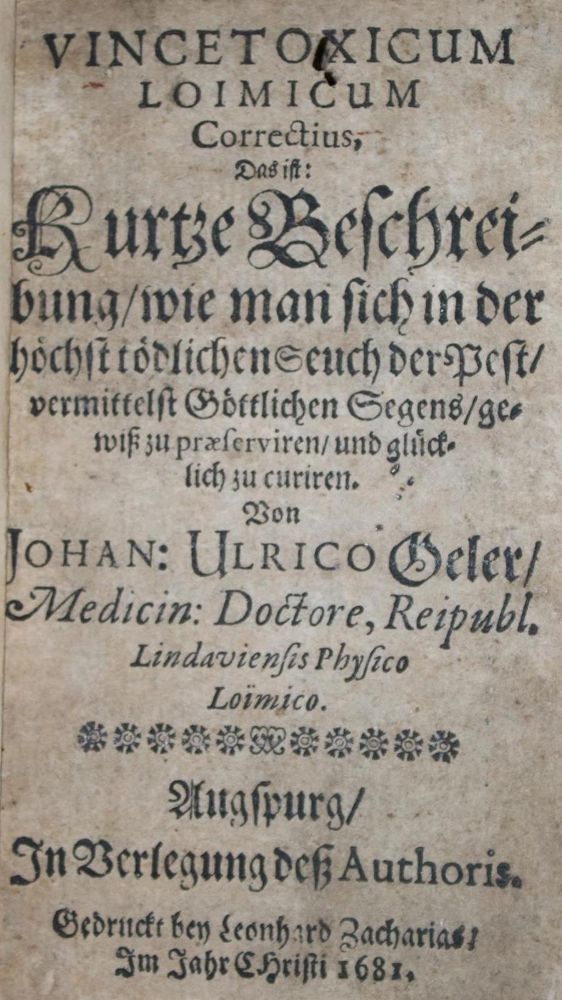 VINCETOXICUM
LOIMICUM
Correctius,
Das ist:
Kurtze Beschrei-
bung/wie man sich in der
höchst tödlichen Seuch der Pest/
vermittelst Göttlichen Segens/ge-
wiß zu præserviren/und glück-
lich zu curiren.
Von
JOHAN: ULRICO Geler/
Medicin: Doctore, Reipubl.
Lindaviensis Physico
Loïmico.
Augspurg/
In Verlegung deß Authoris.
Gedruckt bey Leonhard Zacharias/
Im Jahr CHristi 1681.